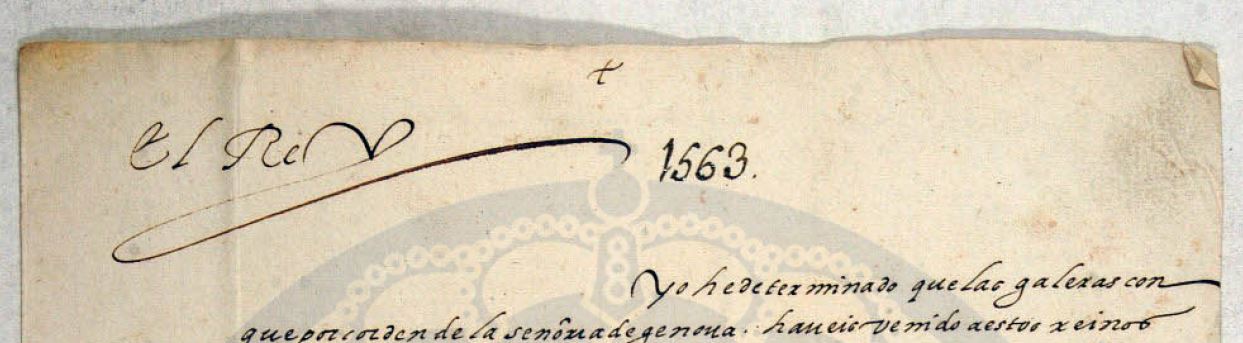 +
El Rey 1563.
Yo he determinado que las galeras con
que por orden de la señoria de genoua. haueis venido a estos reinos